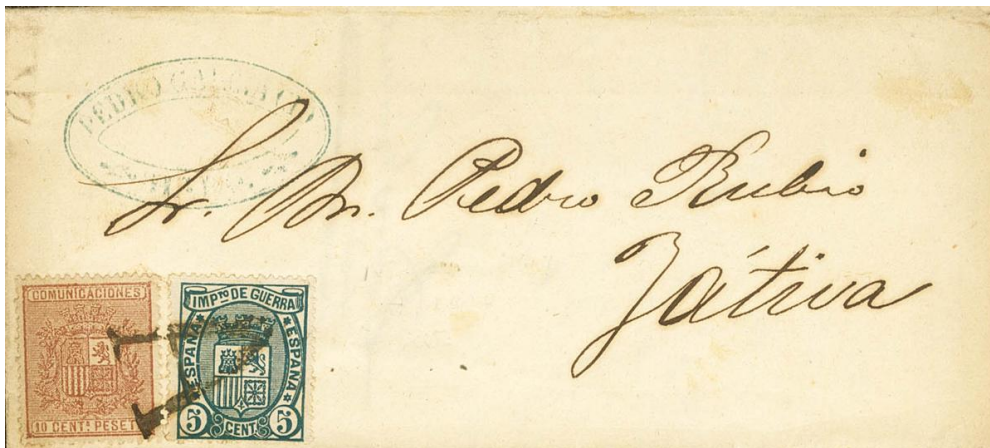 PEDRO
Sr. Dn. Pedro Rubio
Játiva
COMUNICACIONES
10 CENTS PESETA
IMPTO DE GUERRA
ESPAÑA
ESPAÑA
5 CENT. 5